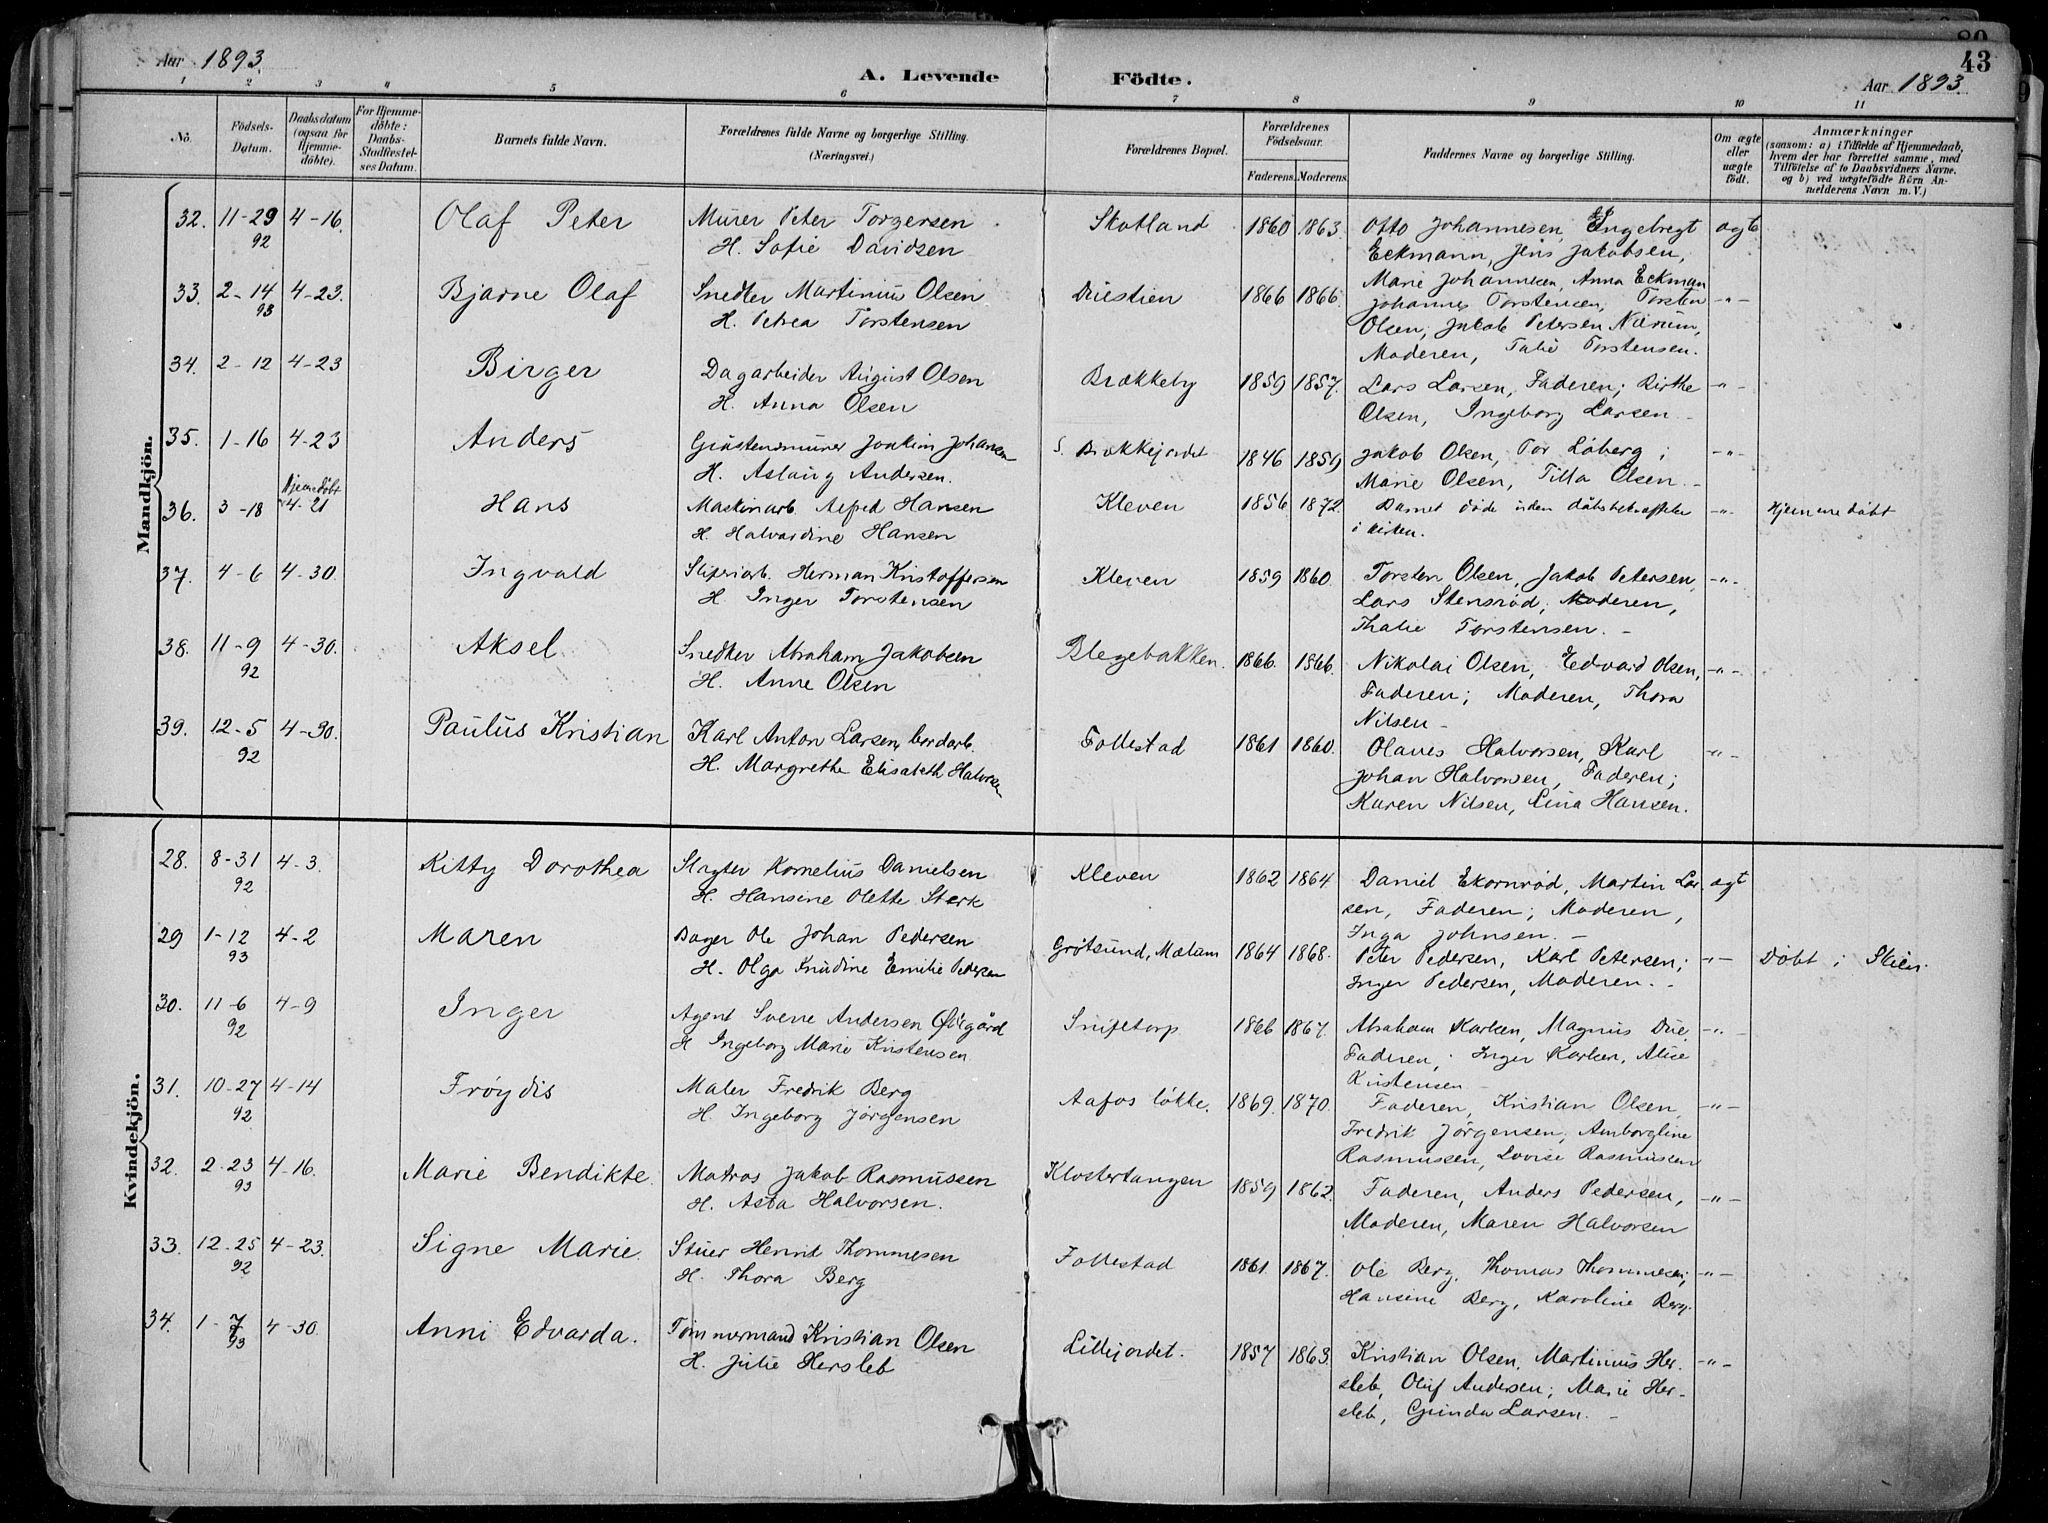 Aar 1893.
A. Levende Födte.
43
Aar 1893.
1 2 3 4 5 6 7 8 9 10 11
No. Födsels-Datum. Daabsdatum (ogsaa for Hjemme-döbte). For Hjemme-döbte: Daabs-Stadfæstel-ses Datum. Barnets fulde Navn. Forældrenes fulde Navne og borgerlige Stilling. (Næringsvei.) Forældrenes Bopæl. Forældrenes Födselsaar. Faderens. Moderens. Faddernes Navne og borgerlige Stilling. Om ægte eller uægte födt. Anmærkninger (saasom: a) i Tilfælde af Hjemmedaab, hvem der har forrettet samme, med Tilföielse af to Daabsvidners Navne. og b) ved uægtefödte Börn An-melderens Navn m. V.)
Mandkjön.
32. 11-29 92 4-16. Olaf Peter Murer Peter Torgersen Skotland 1860 1863. Otto Johannesen, Ingebregt ægte
H. Sofie Davidsen Eckmann, Jens Jakobsen,
Marie Johannesen, Anna Eckman
33. 2-14 93 4-23. Bjarne Olaf Snedker Martinius Olsen Duestien 1866 1866. Johannes Torstensen, Torsten -"-
H. Petrea Torstensen Olsen, Jakob Petersen Nærum,
Moderen, Talie Torstensen.
34. 2-12 4-23 Birger Dagarbeider August Olsen Brækkeby 1859 1857. Lars Larsen, Faderen; Birthe -"-
H. Anna Olsen Olsen, Ingeborg Larsen.
35. 1-16 4-23 Anders Gråstensmurer Joakim Johansen S. Brækkejordet 1846 1859 Jakob Olsen, Tor Løberg; -"-
H. Aslaug Andersen. Marie Olsen, Tilla Olsen.
36. 3-18 Hjemedøbt 4-21 Hans Maskinarb. Alfred Hansen Kleven 1856. 1872. Barnet døde uden dåbsbekræftelse -"- Hjemmedøbt
H. Halvardine Hansen i kirken.
37. 4-6 4-30. Ingvald Sliperiarb. Herman Kristoffersen Kleven 1859 1860. Torsten Olsen, Jakob Petersen, -"-
H. Inger Torstensen Lars Stensrød; Moderen,
Thalie Torstensen. -
38. 11-9 92 4-30. Aksel Snedker Abraham Jakobsen Blegebakken. 1866. 1866. Nikolai Olsen, Edvard Olsen, -"-
H. Anne Olsen Faderen; Moderen, Thora
Nilsen -
39. 12-5 92 4-30. Paulus Kristian Karl Anton Larsen, bordarb. Follestad 1861 1860. Olaves Halvorsen, Karl -"-
H. Margrethe Elisabeth Halvorsen Johan Halvorsen, Faderen;
Karen Nilsen, Lina Hansen.
Kvindekjön.
28. 8-31 92 4-3. Kitty Dorothea Slagter Kornelius Danielsen Kleven 1862 1864 Daniel Ekornrød, Martin Lar- ægt
H. Hansine Olette Sterk sen, Faderen; Moderen,
Inga Johnsen. -
29 1-12 93 4-2 Maren Bager Ole Johan Pedersen Grøtsund, Mælum 1864 1868. Peter Pedersen, Karl Petersen; -"- Døbt i Skien.
H. Olga Knudine Emilie Pedersen Inger Pedersen, Moderen. -
30. 11-6 92 4-9 Inger Agent Sverre Andersen Ødegård Snipetorp 1866 1867. Abraham Karlsen, Magnus Due, -"-
H Ingeborg Marie Kristensen Faderen; Inger Karlsen, Alice
Kristensen -
31. 10-27 92 4-14 Frøydis Maler Fredrik Berg Aafos løkke. 1869. 1870. Faderen, Kristian Olsen, -"-
H. Ingeborg Jørgensen Fredrik Jørgensen, Amborgline
Rasmussen, Lovise Rasmussen
32. 2-23 93 4-16. Marie Bendikte. Matros Jakob Rasmussen Klostertangen 1859 1862. Faderen, Anders Pedersen, -"-
H. Asta Halvorsen. Moderen, Maren Halvorsen
33. 12-25 92 4-23. Signe Marie. Stuer Henrik Thommesen Follestad 1861. 1867. Ole Berg, Thomas Thommesen; -"-
H. Thora Berg Hansine Berg, Karoline Berg.
34. 1-7 93 4-30. Anni Edvarda. Tømmermand Kristian Olsen Lillejordet. 1857 1863. Kristian Olsen, Martinius Her- -"-
H. Julie Hersleb sleb, Oluf Andersen; Marie Her-
sleb, Gunda Larsen. -